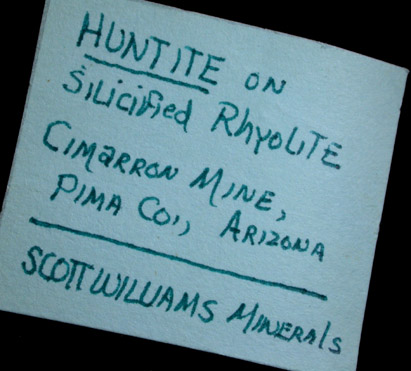 HUNTITE ON
SiLicified RhyoLiTE
CiMARRON MINE,
PIMA CO., ARIZONA
SCOTT WILLIAMS MINERALS